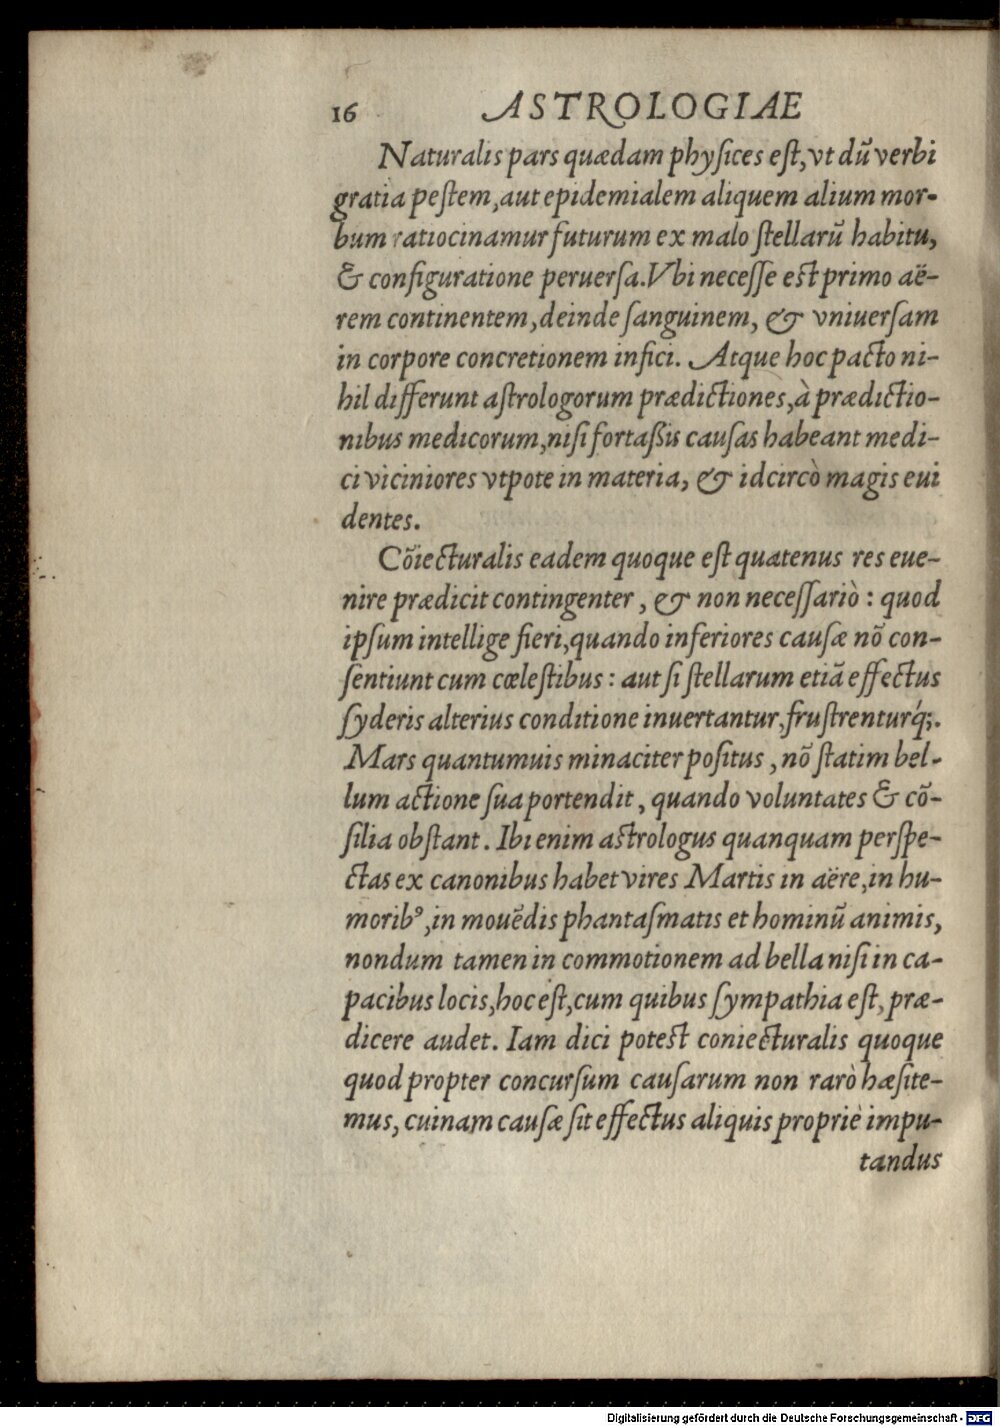 16 ASTROLOGIAE
Naturalis pars quædam phyſices eſt, vt dũ verbi
gratia peſtem, aut epidemialem aliquem alium mor-
bum ratiocinamur futurum ex malo ſtellarũ habitu,
& configuratione peruerſa. Vbi neceſſe eſt primo aë-
rem continentem, deinde ſanguinem, & vniuerſam
in corpore concretionem infici. Atque hoc pacto ni-
hil differunt aſtrologorum prædictiones, à prædictio-
nibus medicorum, niſi fortaßis cauſas habeant medi-
ci viciniores vtpote in materia, & idcircò magis eui
dentes.
Cõiecturalis eadem quoque eſt quatenus res eue-
nire prædicit contingenter, & non neceſſariò : quod
ipſum intellige fieri, quando inferiores cauſæ nõ con-
ſentiunt cum cœleſtibus : aut ſi ſtellarum etiã effectus
ſyderis alterius conditione inuertantur, fruſtrenturq́;.
Mars quantumuis minaciter poſitus, nõ ſtatim bel-
lum actione ſua portendit, quando voluntates & cõ-
ſilia obſtant. Ibi enim aſtrologus quanquam perſpe-
ctas ex canonibus habet vires Martis in aëre, in hu-
moribꝰ, in mouẽdis phantaſmatis et hominũ animis,
nondum tamen in commotionem ad bella niſi in ca-
pacibus locis, hoc eſt, cum quibus ſympathia eſt, præ-
dicere audet. Iam dici poteſt coniecturalis quoque
quod propter concurſum cauſarum non rarò hæſite-
mus, cuinam cauſæ ſit effectus aliquis propriè impu-
tandus
Digitalisierung gefördert durch die Deutsche Forschungsgemeinschaft - DFG